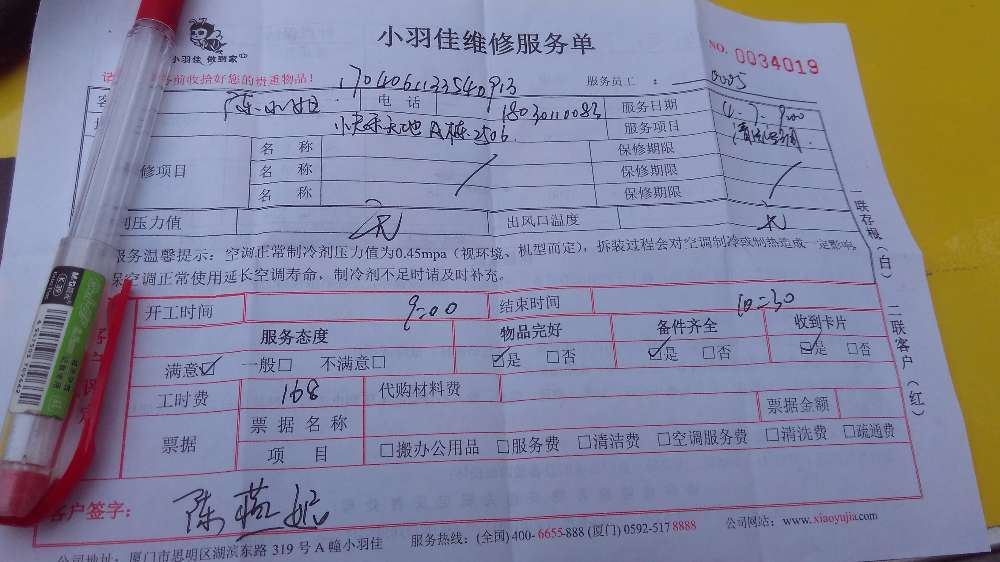 小羽佳 做到家
小羽佳维修服务单
NO. 0034019
前收拾好您的贵重物品！
17040611233540913
服务员工 ： 0005
陈小姐 电话 18030110083 服务日期 4.7. 9:00
A栋2506 服务项目 清洗空调
修项目 名 称 保修期限
名 称 保修期限
名 称 保修期限
压力值 出风口温度
服务温馨提示：空调正常制冷剂压力值为0.45mpa（视环境、机型而定），拆装过程会对空调制冷或制热造成一定影响，
保空调正常使用延长空调寿命，制冷剂不足时请及时补充。
一联存根（白）
二联客户（红）
开工时间 9:00 结束时间 10:30
服务态度 物品完好 备件齐全 收到卡片
满意☑ 一般□ 不满意□ ☑是 □否 ☑是 □否 ☑是 □否
工时费 168 代购材料费
票据 票据名称 票据金额
项 目 □搬办公用品 □服务费 □清洁费 □空调服务费 □清洗费 □疏通费
客户签字：
公司地址：厦门市思明区湖滨东路 319 号 A 幢小羽佳 服务热线：(全国) 400-6655-888 (厦门) 0592-517 8888 公司网站：www.xiaoyujia.com